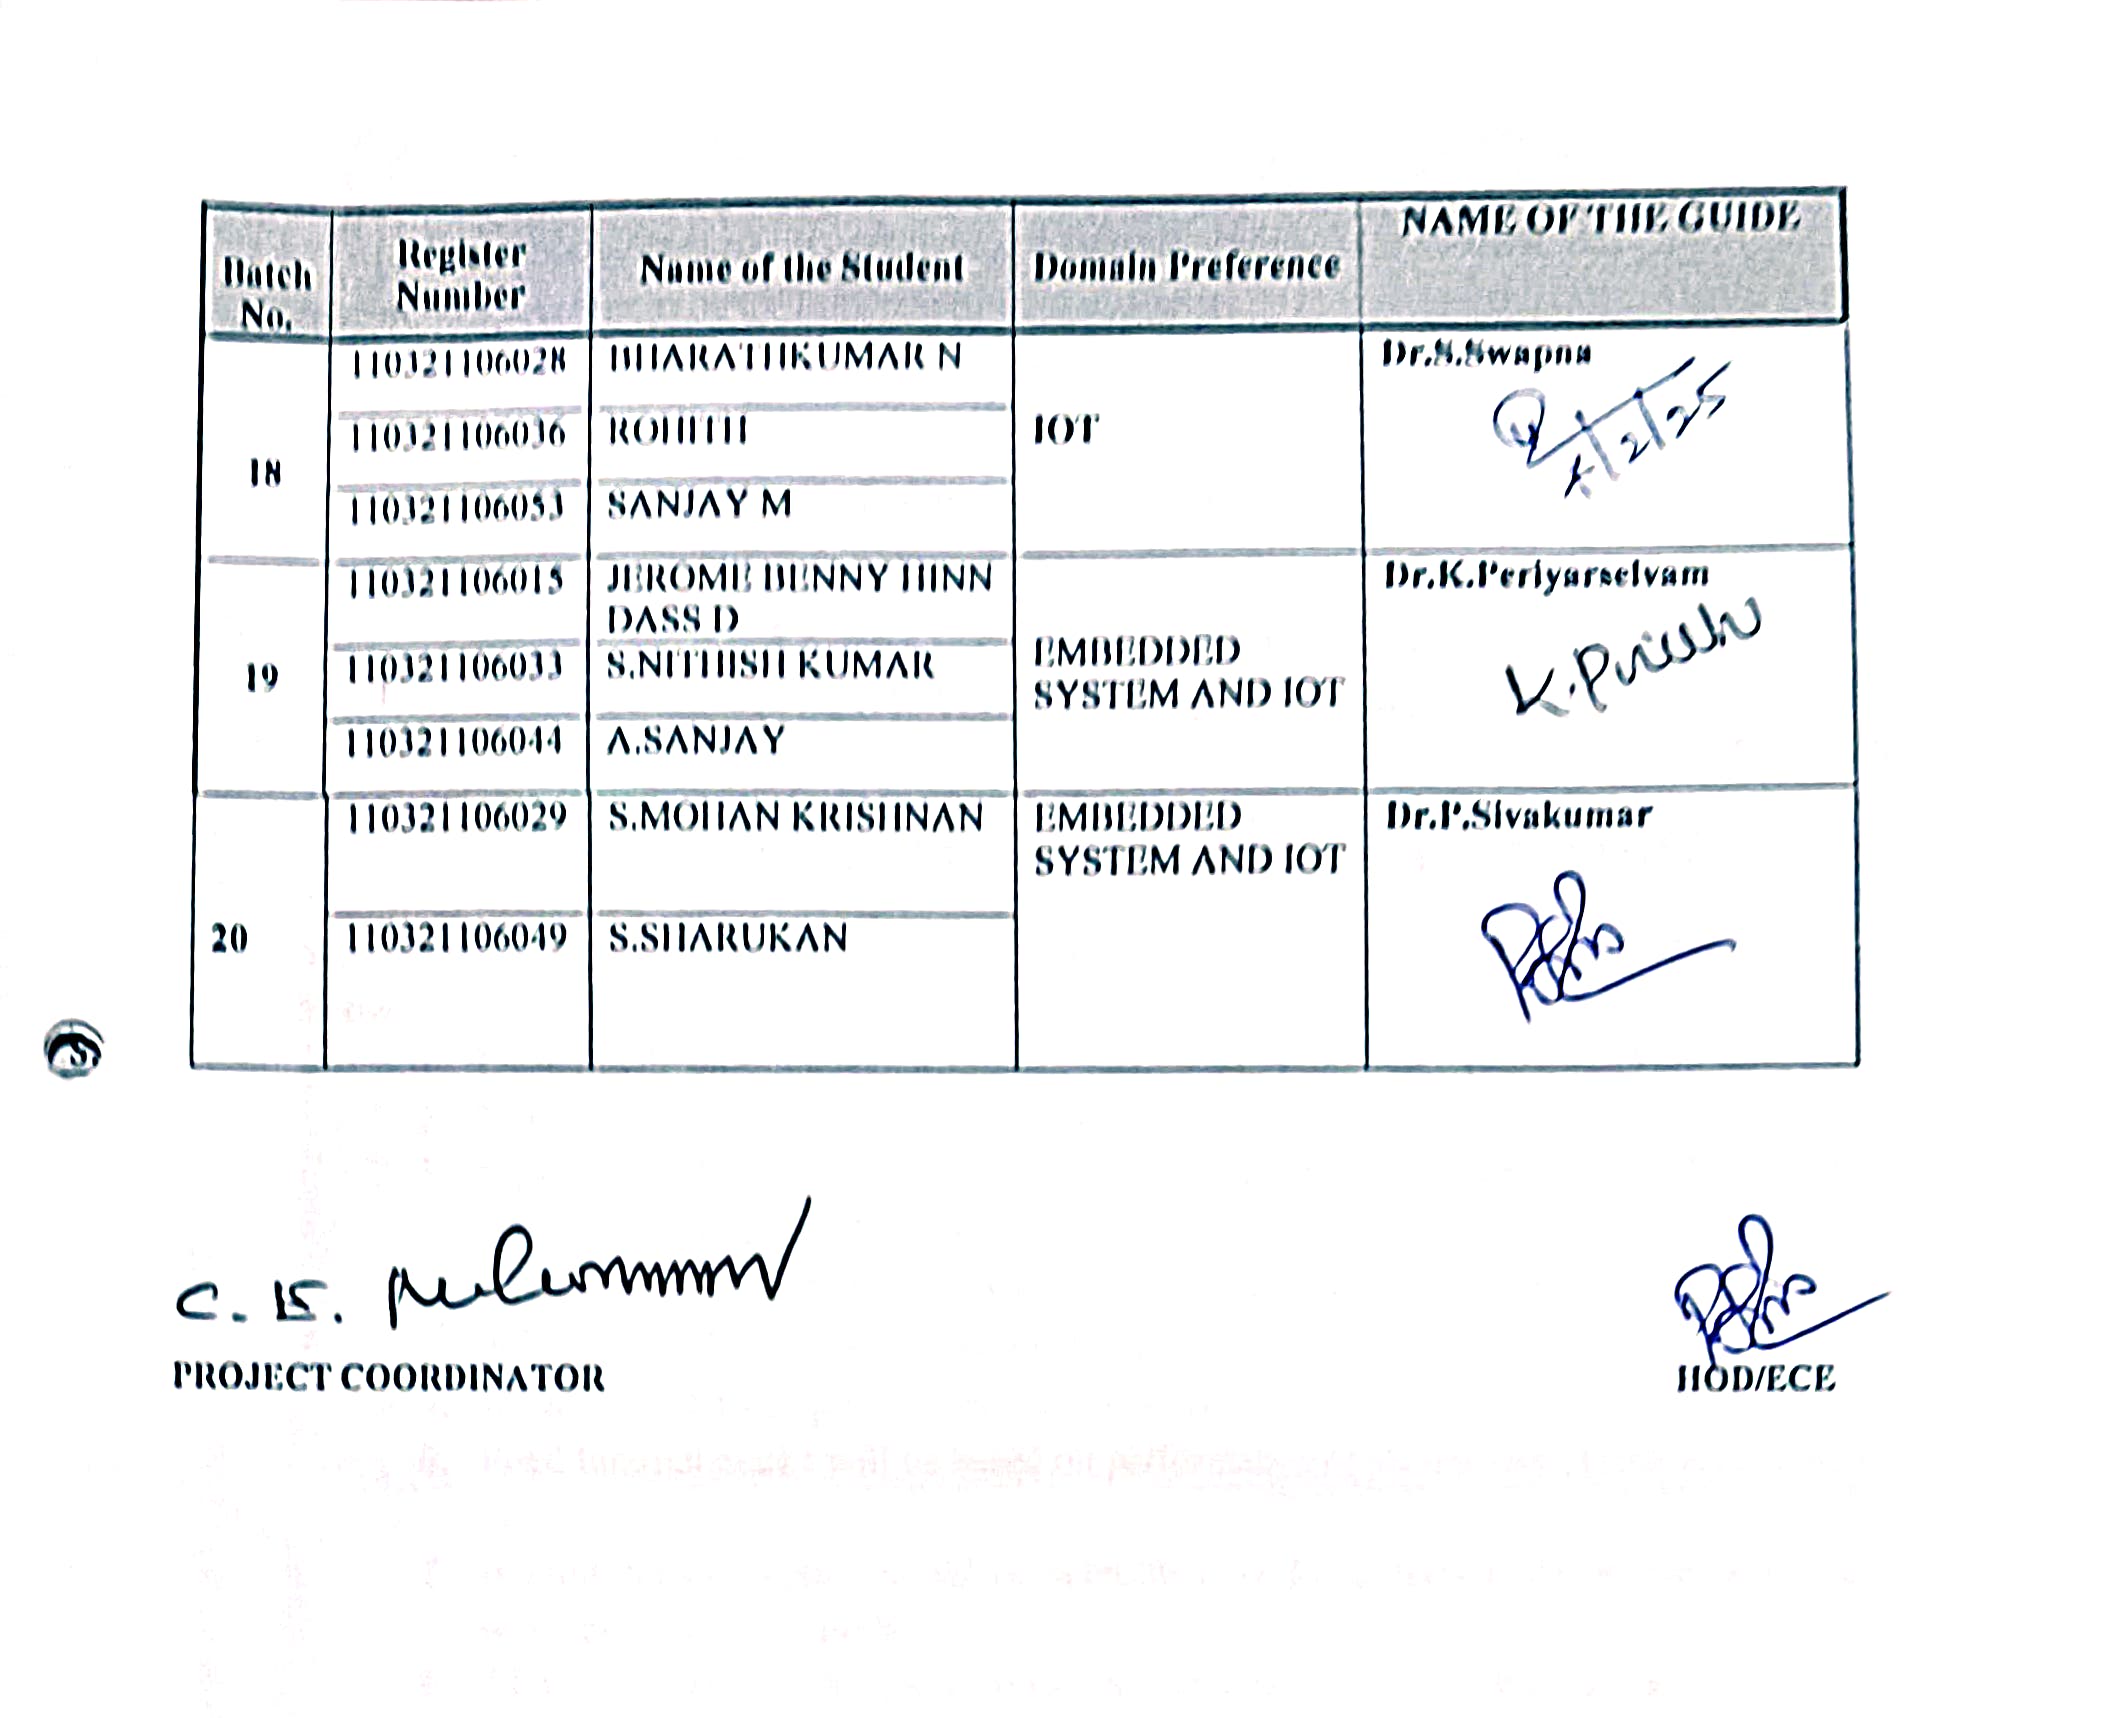 Batch No.
Register Number
Name of the Student
Domain Preference
NAME OF THE GUIDE
18
110321106028
BHARATHKUMAR N
IOT
Dr.S.Swapna
110321106036
ROHITH
110321106053
SANJAY M
19
110321106015
JEROME BENNY HINN
DASS D
EMBEDDED
SYSTEM AND IOT
Dr.K.Periyarselvam
110321106033
S.NITHISH KUMAR
110321106044
A.SANJAY
20
110321106029
S.MOHAN KRISHNAN
EMBEDDED
SYSTEM AND IOT
Dr.P.Sivakumar
110321106049
S.SHARUKAN
PROJECT COORDINATOR
HOD/ECE